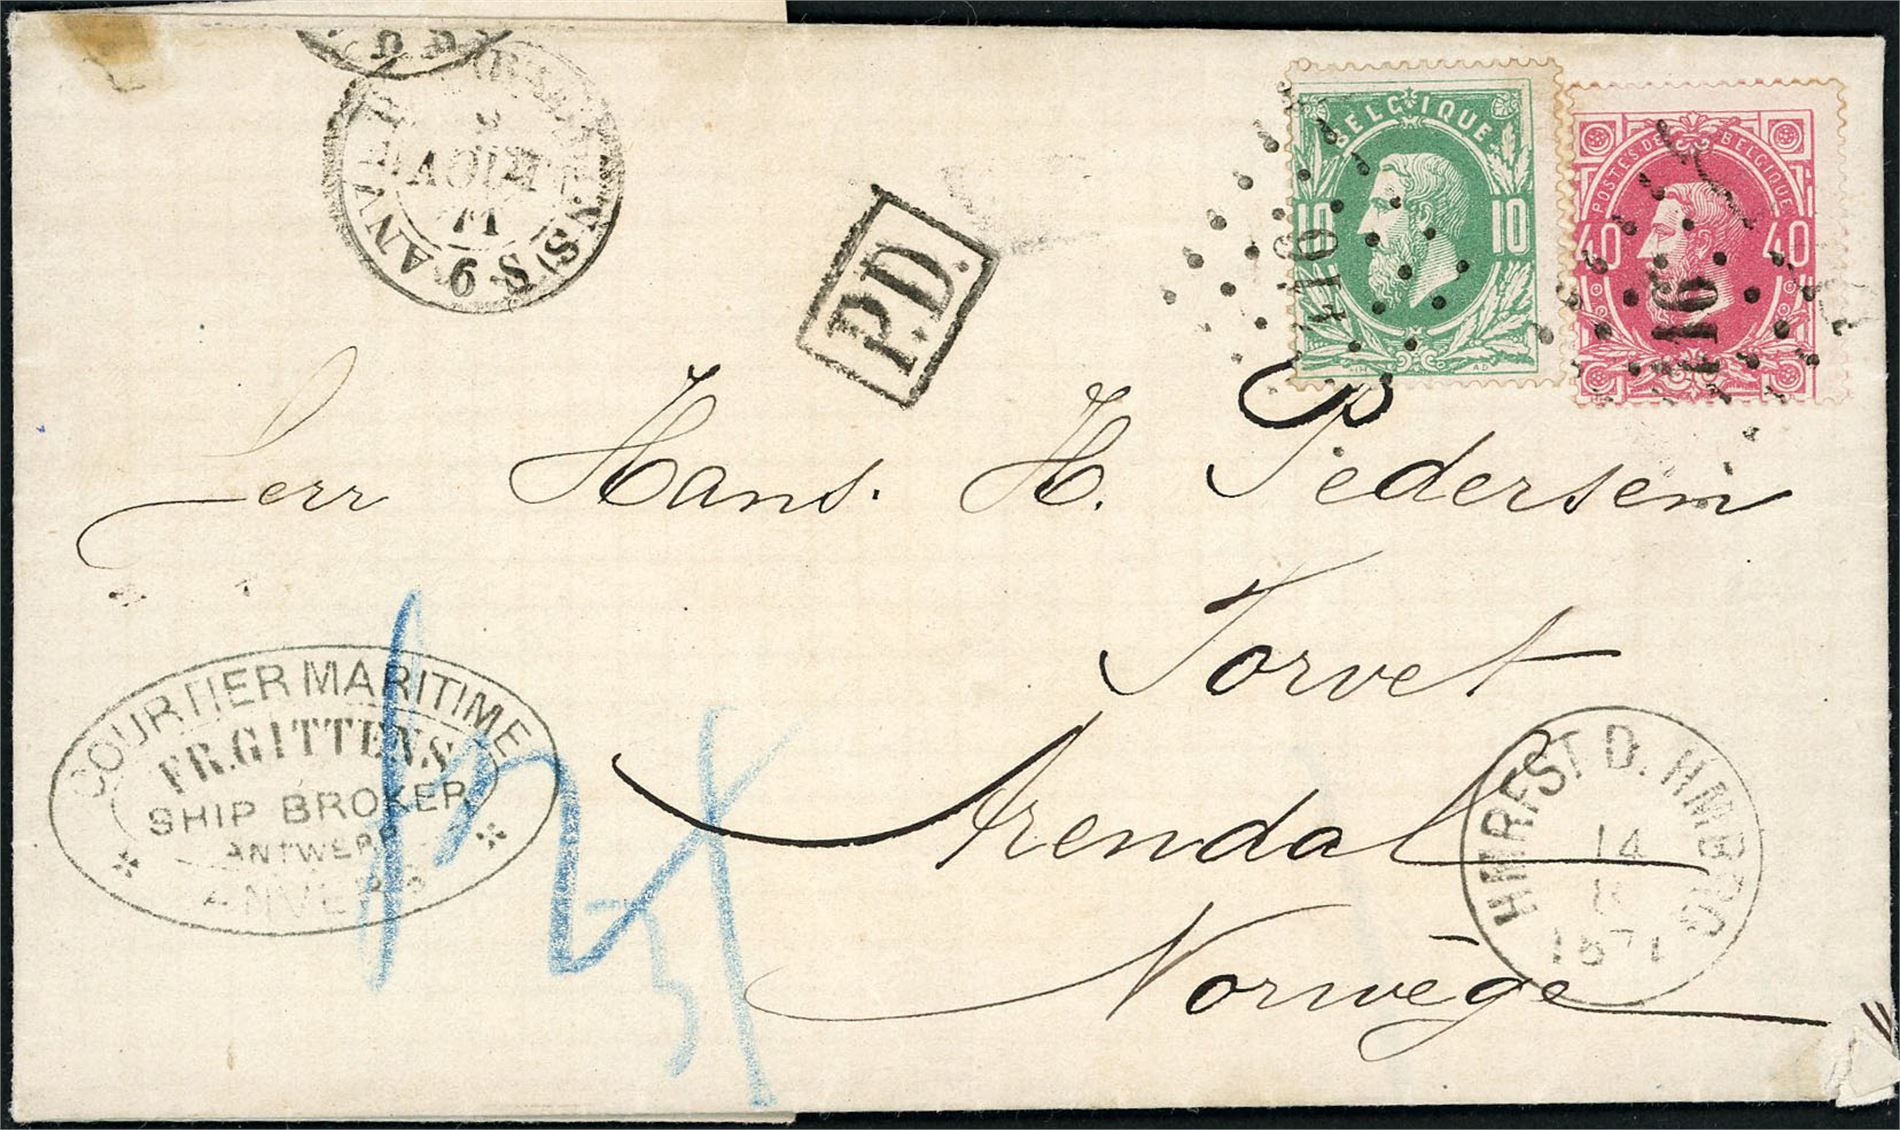 BELGIQUE
10 10
416
POSTES DE BELGIQUE
40 40
416
ANVERS (STATION)
71
9 S
P.D.
Herr Hans. H. Pedersen
Torvet
Arendal
Norwège
COURTIER MARITIME
FR. GITTENS
SHIP BROKER
ANTWERP
ANVERS
14
1871